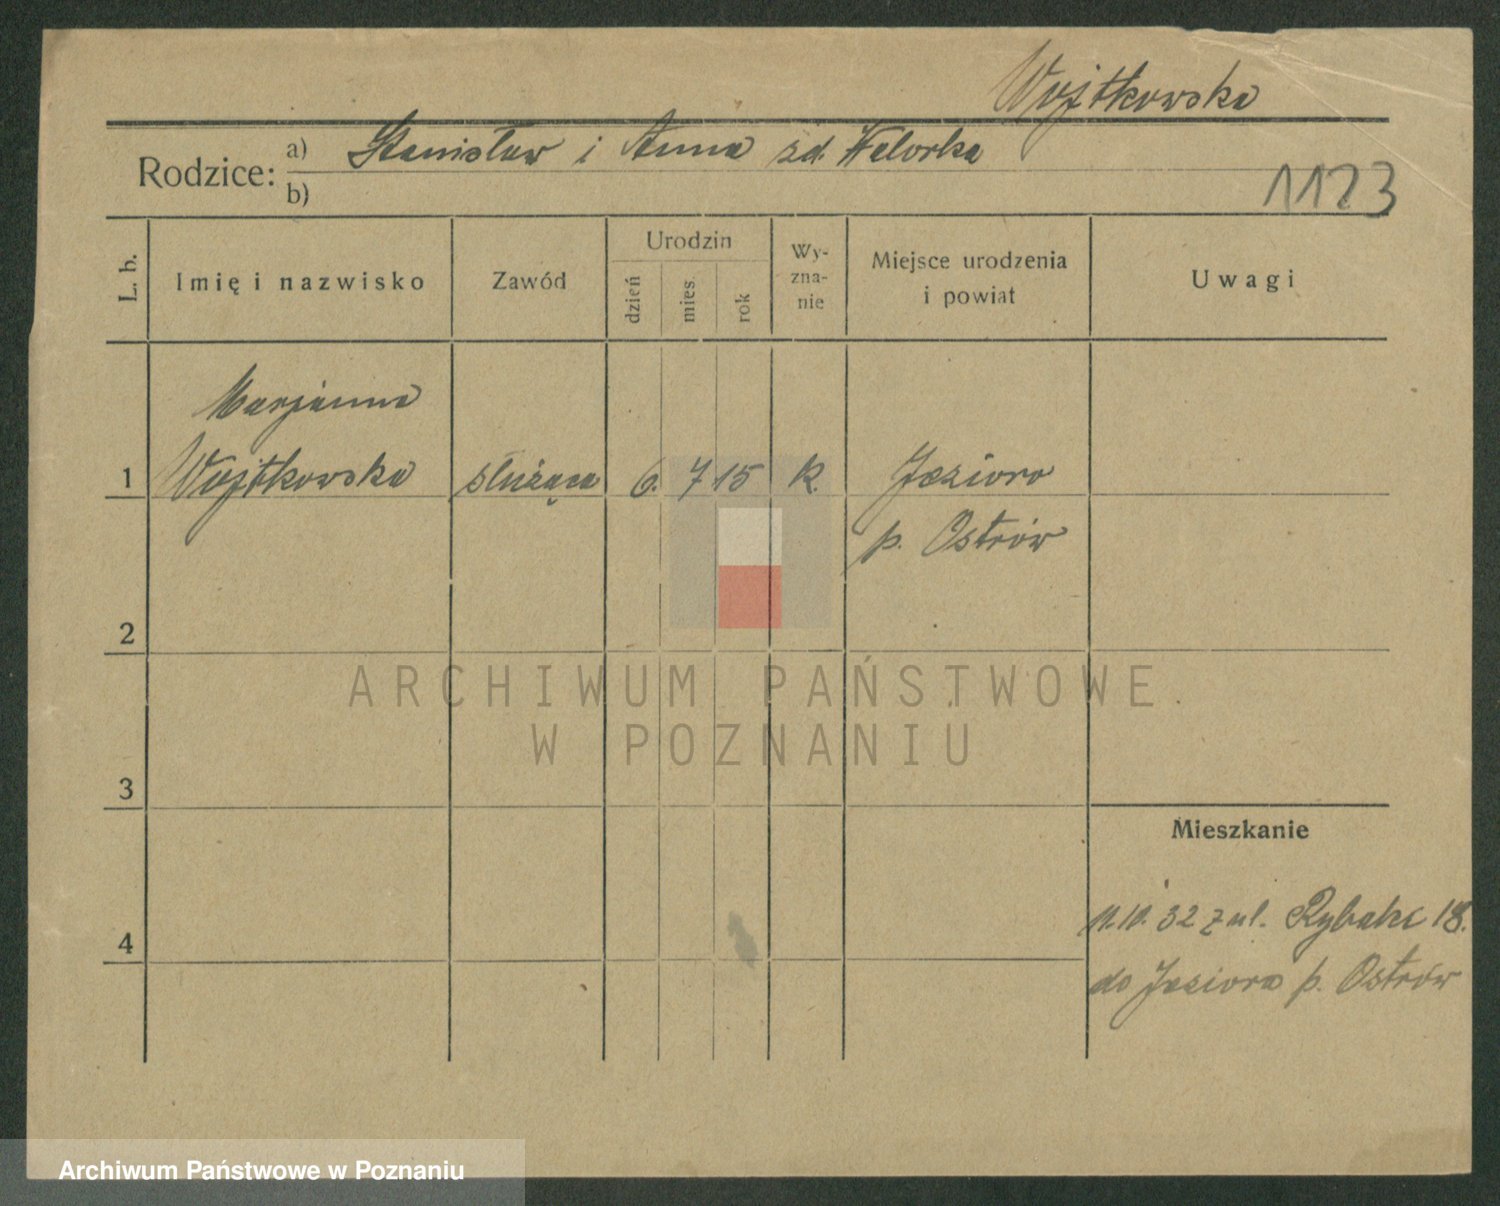 Wojtkowska
Rodzice: a) Stanisław i Anna zd. Welorka
b)
1123
L. b.
Imię i nazwisko
Zawód
Urodzin
dzień
mies.
rok
Wy-
zna-
nie
Miejsce urodzenia
i powiat
Uwagi
Marjanna
1 Wojtkowska służąca 6. 7 15 k. Jezioro
p. Ostrów
2
ARCHIWUM PAŃSTWOWE
W POZNANIU
3
Mieszkanie
4
11.10.32 z ul. Rybaki 18.
do Jeziora p. Ostrów
Archiwum Państwowe w Poznaniu